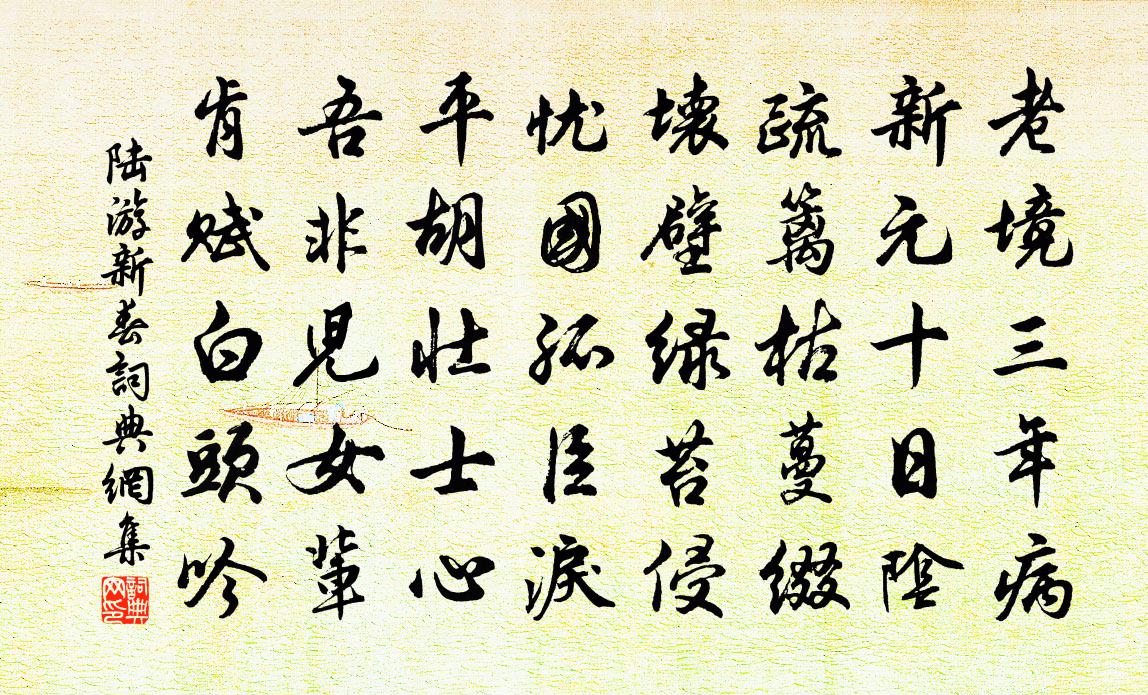 老境三年病
新元十日陰
疏籬枯蔓綴
壞壁緑苔侵
忧國孤臣淚
平胡壯士心
吾非兒女輩
肯賦白頭吟
陆游新春詞典網集
詞典网印